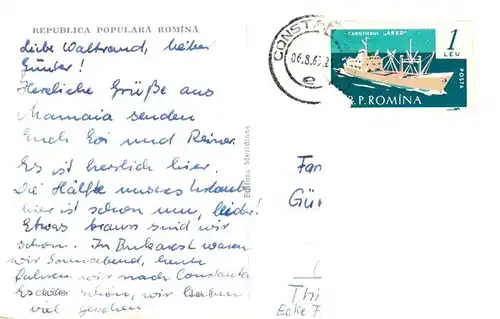 REPUBLICA POPULARĂ ROMÎNĂ
Liebe Waltraud, lieber
Günter!
Herzliche Grüße aus
Mamaia senden
Euch Evi und Reiner.
Es ist herrlich hier.
Die Hälfte unseres Urlaubs
hier ist schon um, leider!
Etwas braun sind wir
schon. In Bukarest waren
wir Sonnabend, heute
fahren wir nach Constanta
Es schön, wir haben
viel gesehen.
Editura Meridiane
CONSTAN
06.8.6
e
CARGOTRIBUL „ARAD"
1
LEU
POSTA
R.P.ROMÎNA
Fam
Gün
Th
Ecke F